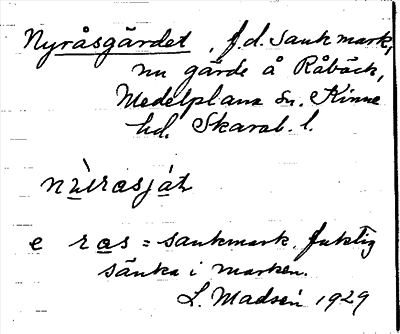 Nyråsgärdet, f.d. sank mark,
nu gärde å Råbäck,
Medelplana sn. Kinne
hd. Skarab. l.
nỳrasjät
e ras = sankmark. fuktig
sänka i marken.
L. Madsén 1929